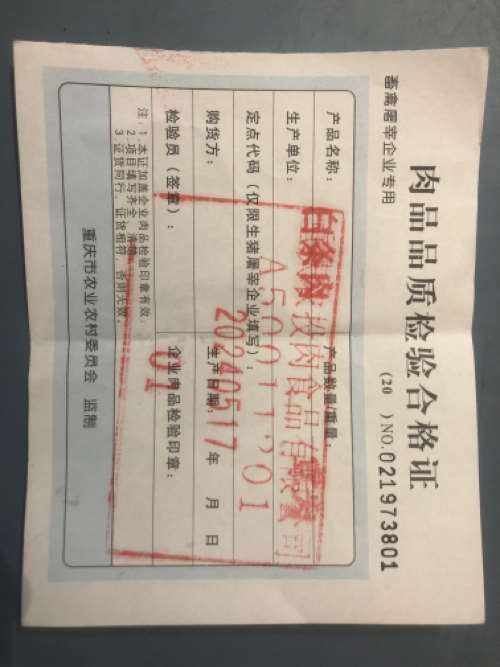 肉品品质检验合格证
畜禽屠宰企业专用
(20 ) NO.021973801
产品名称: 白条肉 产品数量/重量:
生产单位: 投肉食品有限公司
定点代码(仅限生猪屠宰企业填写): A50011201
购货方: 生产日期: 20240517 年 月 日
检验员(签章): 01 企业肉品检验印章:
注: 1.本证加盖企业肉品检验印章有效。
2.项目填写齐全,清楚
3.证货同行,证货相符,否则无效。
重庆市农业农村委员会 监制